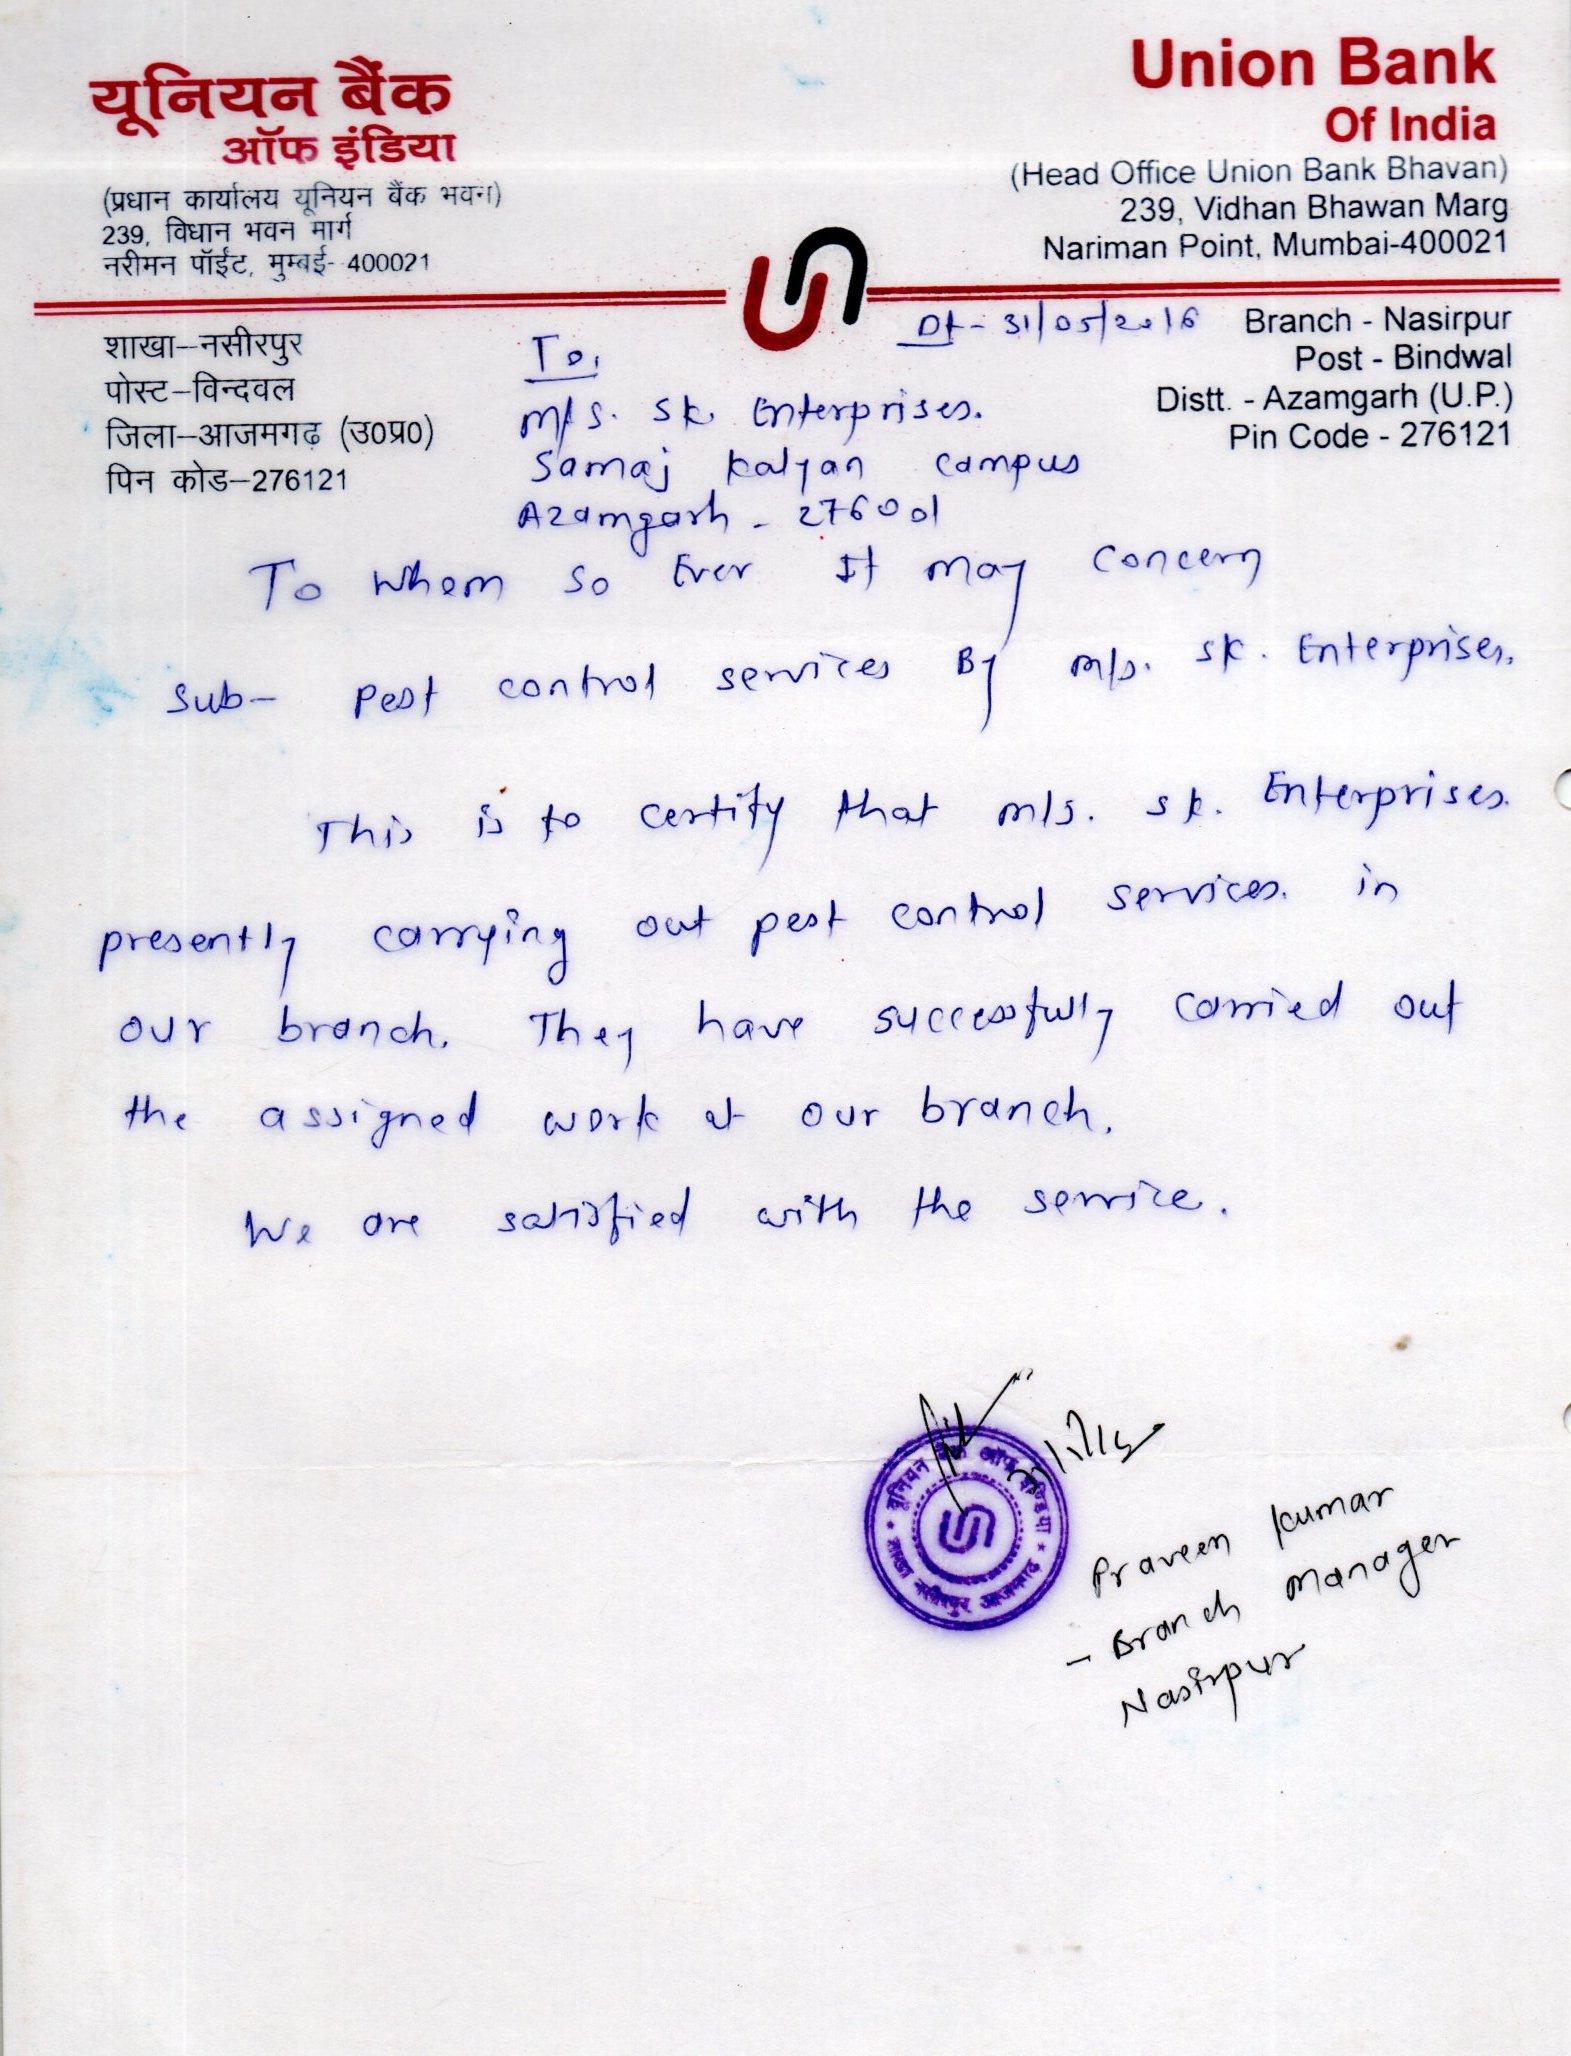 यूनियन बैंक
ऑफ इंडिया
(प्रधान कार्यालय यूनियन बैंक भवन)
239, विधान भवन मार्ग
नरीमन पॉईंट, मुम्बई- 400021
Union Bank
Of India
(Head Office Union Bank Bhavan)
239, Vidhan Bhawan Marg
Nariman Point, Mumbai-400021
शाखा–नसीरपुर
पोस्ट–विन्दवल
जिला–आजमगढ़ (उ0प्र0)
पिन कोड–276121
Dt- 31/05/2016
Branch - Nasirpur
Post - Bindwal
Distt. - Azamgarh (U.P.)
Pin Code - 276121
To,
M/s. Sk. Enterprises.
Samaj Kalyan Campus
Azamgarh - 276001
To Whom So Ever It May Concern
Sub- Pest control services By M/s. Sk. Enterprises.
This is to certify that M/s. Sk. Enterprises.
presently carrying out pest control services. in
our branch. They have successfully carried out
the assigned work at our branch.
We are satisfied with the service.
यूनियन बैंक ऑफ इण्डिया
शाखा नसीरपुर आजमगढ़
Praveen Kumar
- Branch Manager
Nasirpur